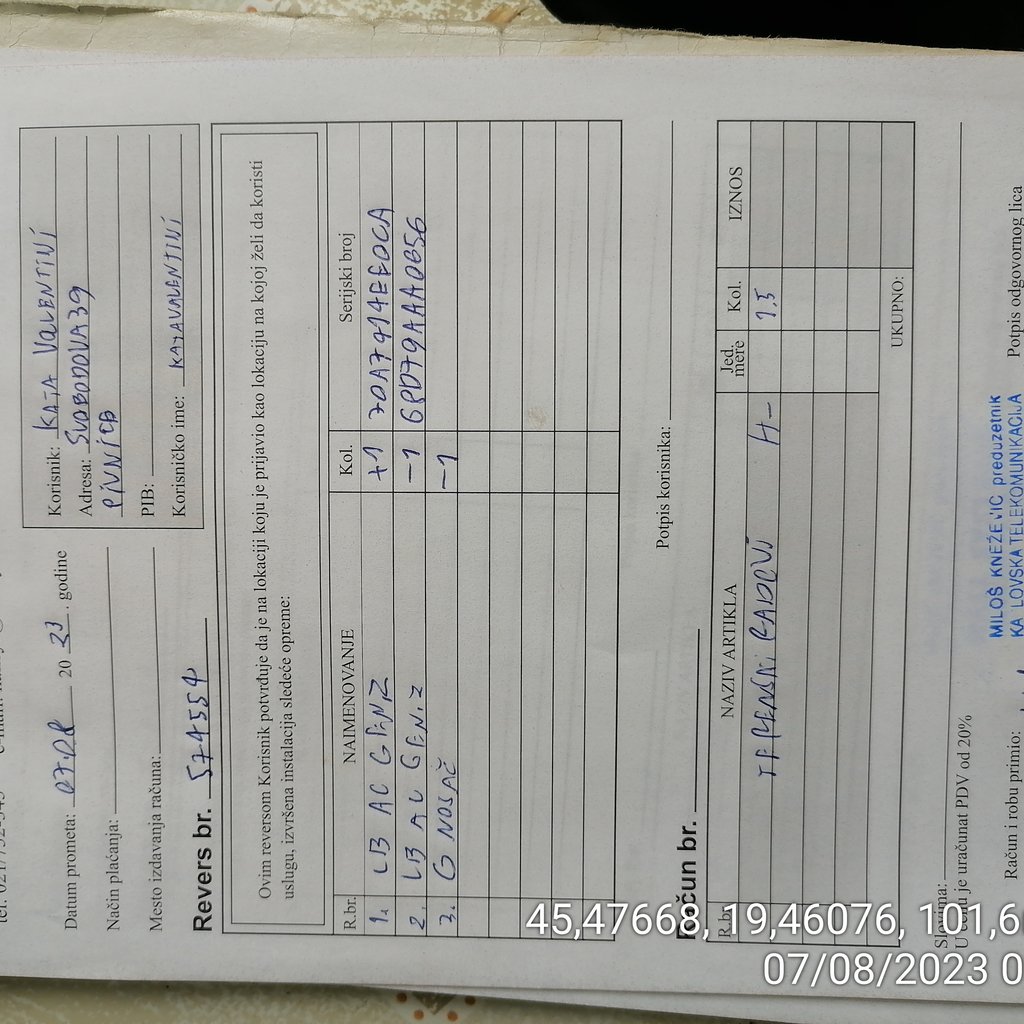 Datum prometa: 07.08 2023. godine
Način plaćanja:
Mesto izdavanja računa:
Korisnik: KAJA VALENTINI
Adresa: SLOBODOVA 39
PIVNICE
PIB:
Korisničko ime: KAJAVALENTINI
Revers br. 574554
Ovim reversom Korisnik potvrđuje da je na lokaciji koju je prijavio kao lokaciju na kojoj želi da koristi
uslugu, izvršena instalacija sledeće opreme:
R.br. NAIMENOVANJE Kol. Serijski broj
1. LB AC GEN.2 +1 70A7414EE0CA
2. LB AC GEN.2 -1
3. G NOSAČ -1
Potpis korisnika:
Račun br.
R.br. NAZIV ARTIKLA Jed. mere Kol. IZNOS
TERENSKI RADOVI H- 1,5
UKUPNO:
Slovima:
U cenu je uračunat PDV od 20%
Račun i robu primio:
MILOŠ KNEŽEVIĆ preduzetnik
LOVSKA TELEKOMUNIKACIJA
Potpis odgovornog lica
45,47668, 19,46076, 101,6
07/08/2023 0